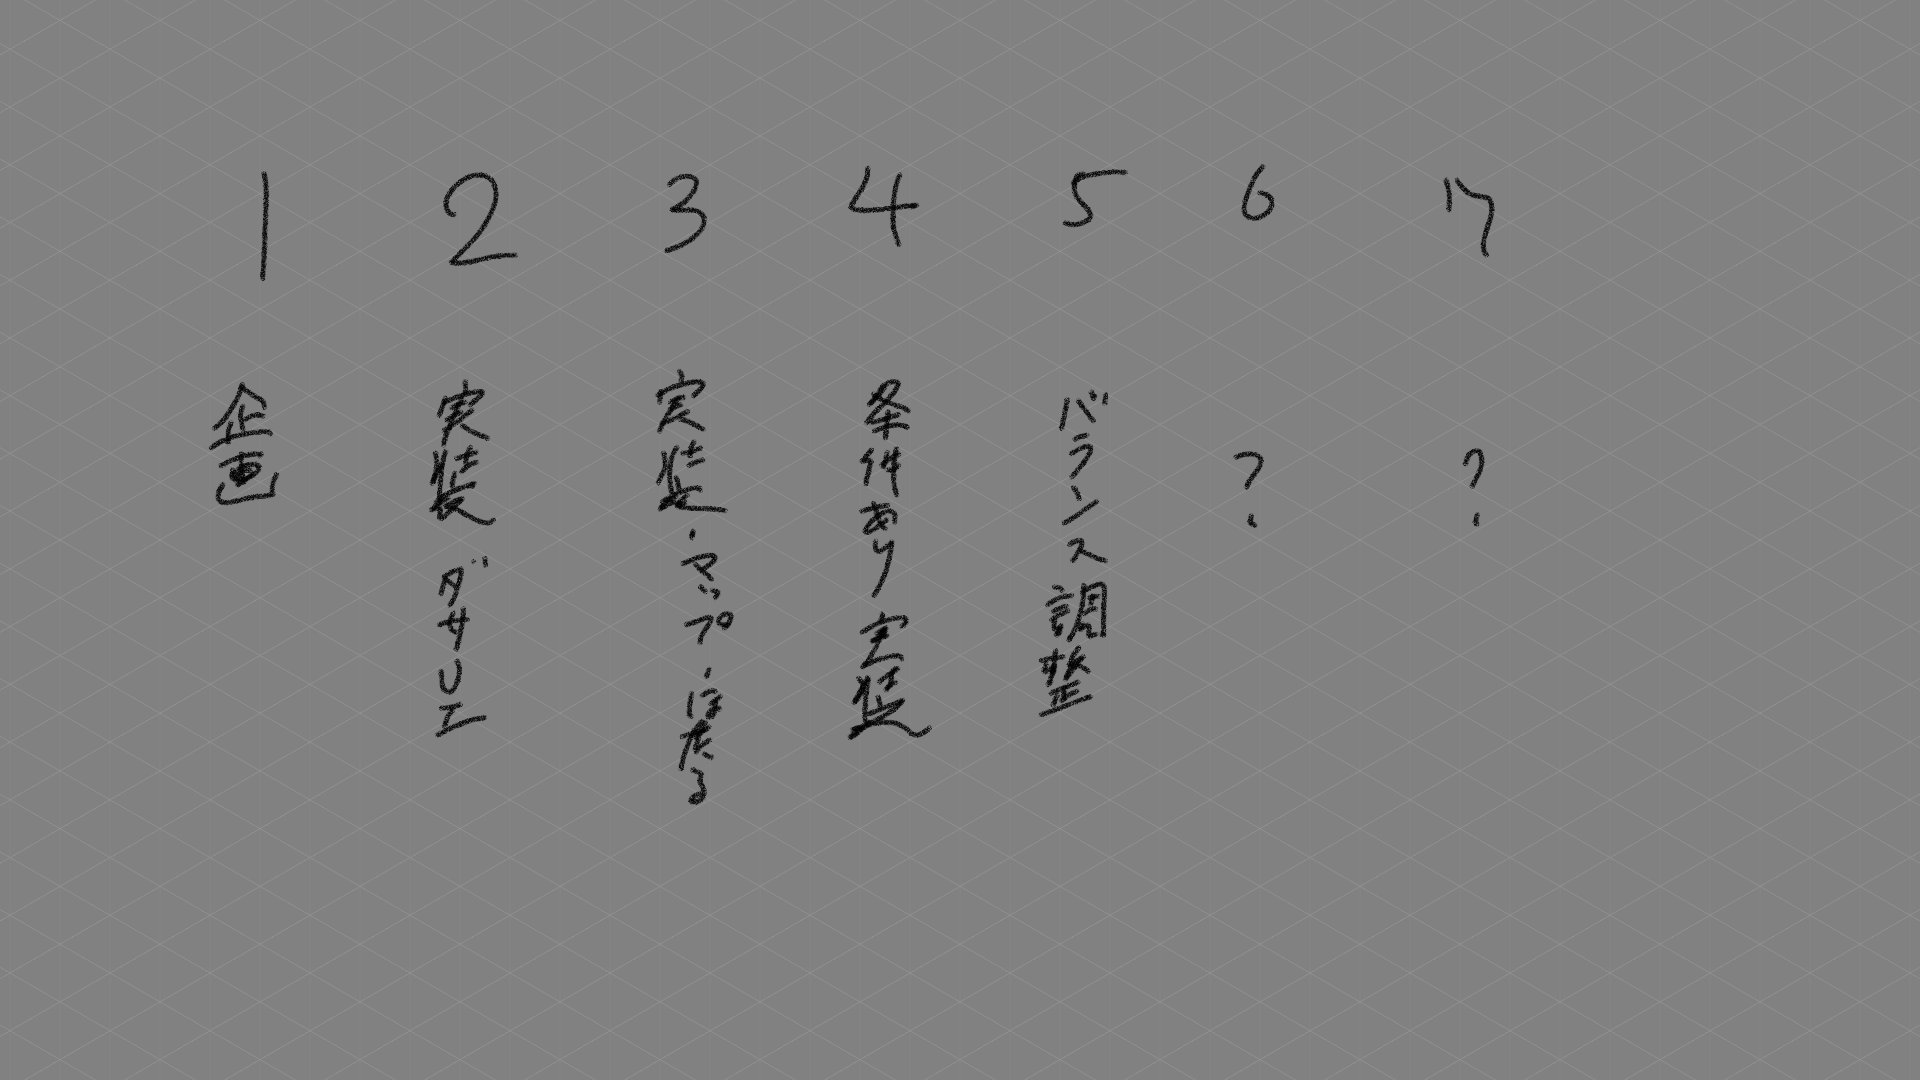 1 2 3 4 5 6 7
企画
実装 ダサUI
実装・マップ・は戻る
条件あり実装
バランス調整
?
?